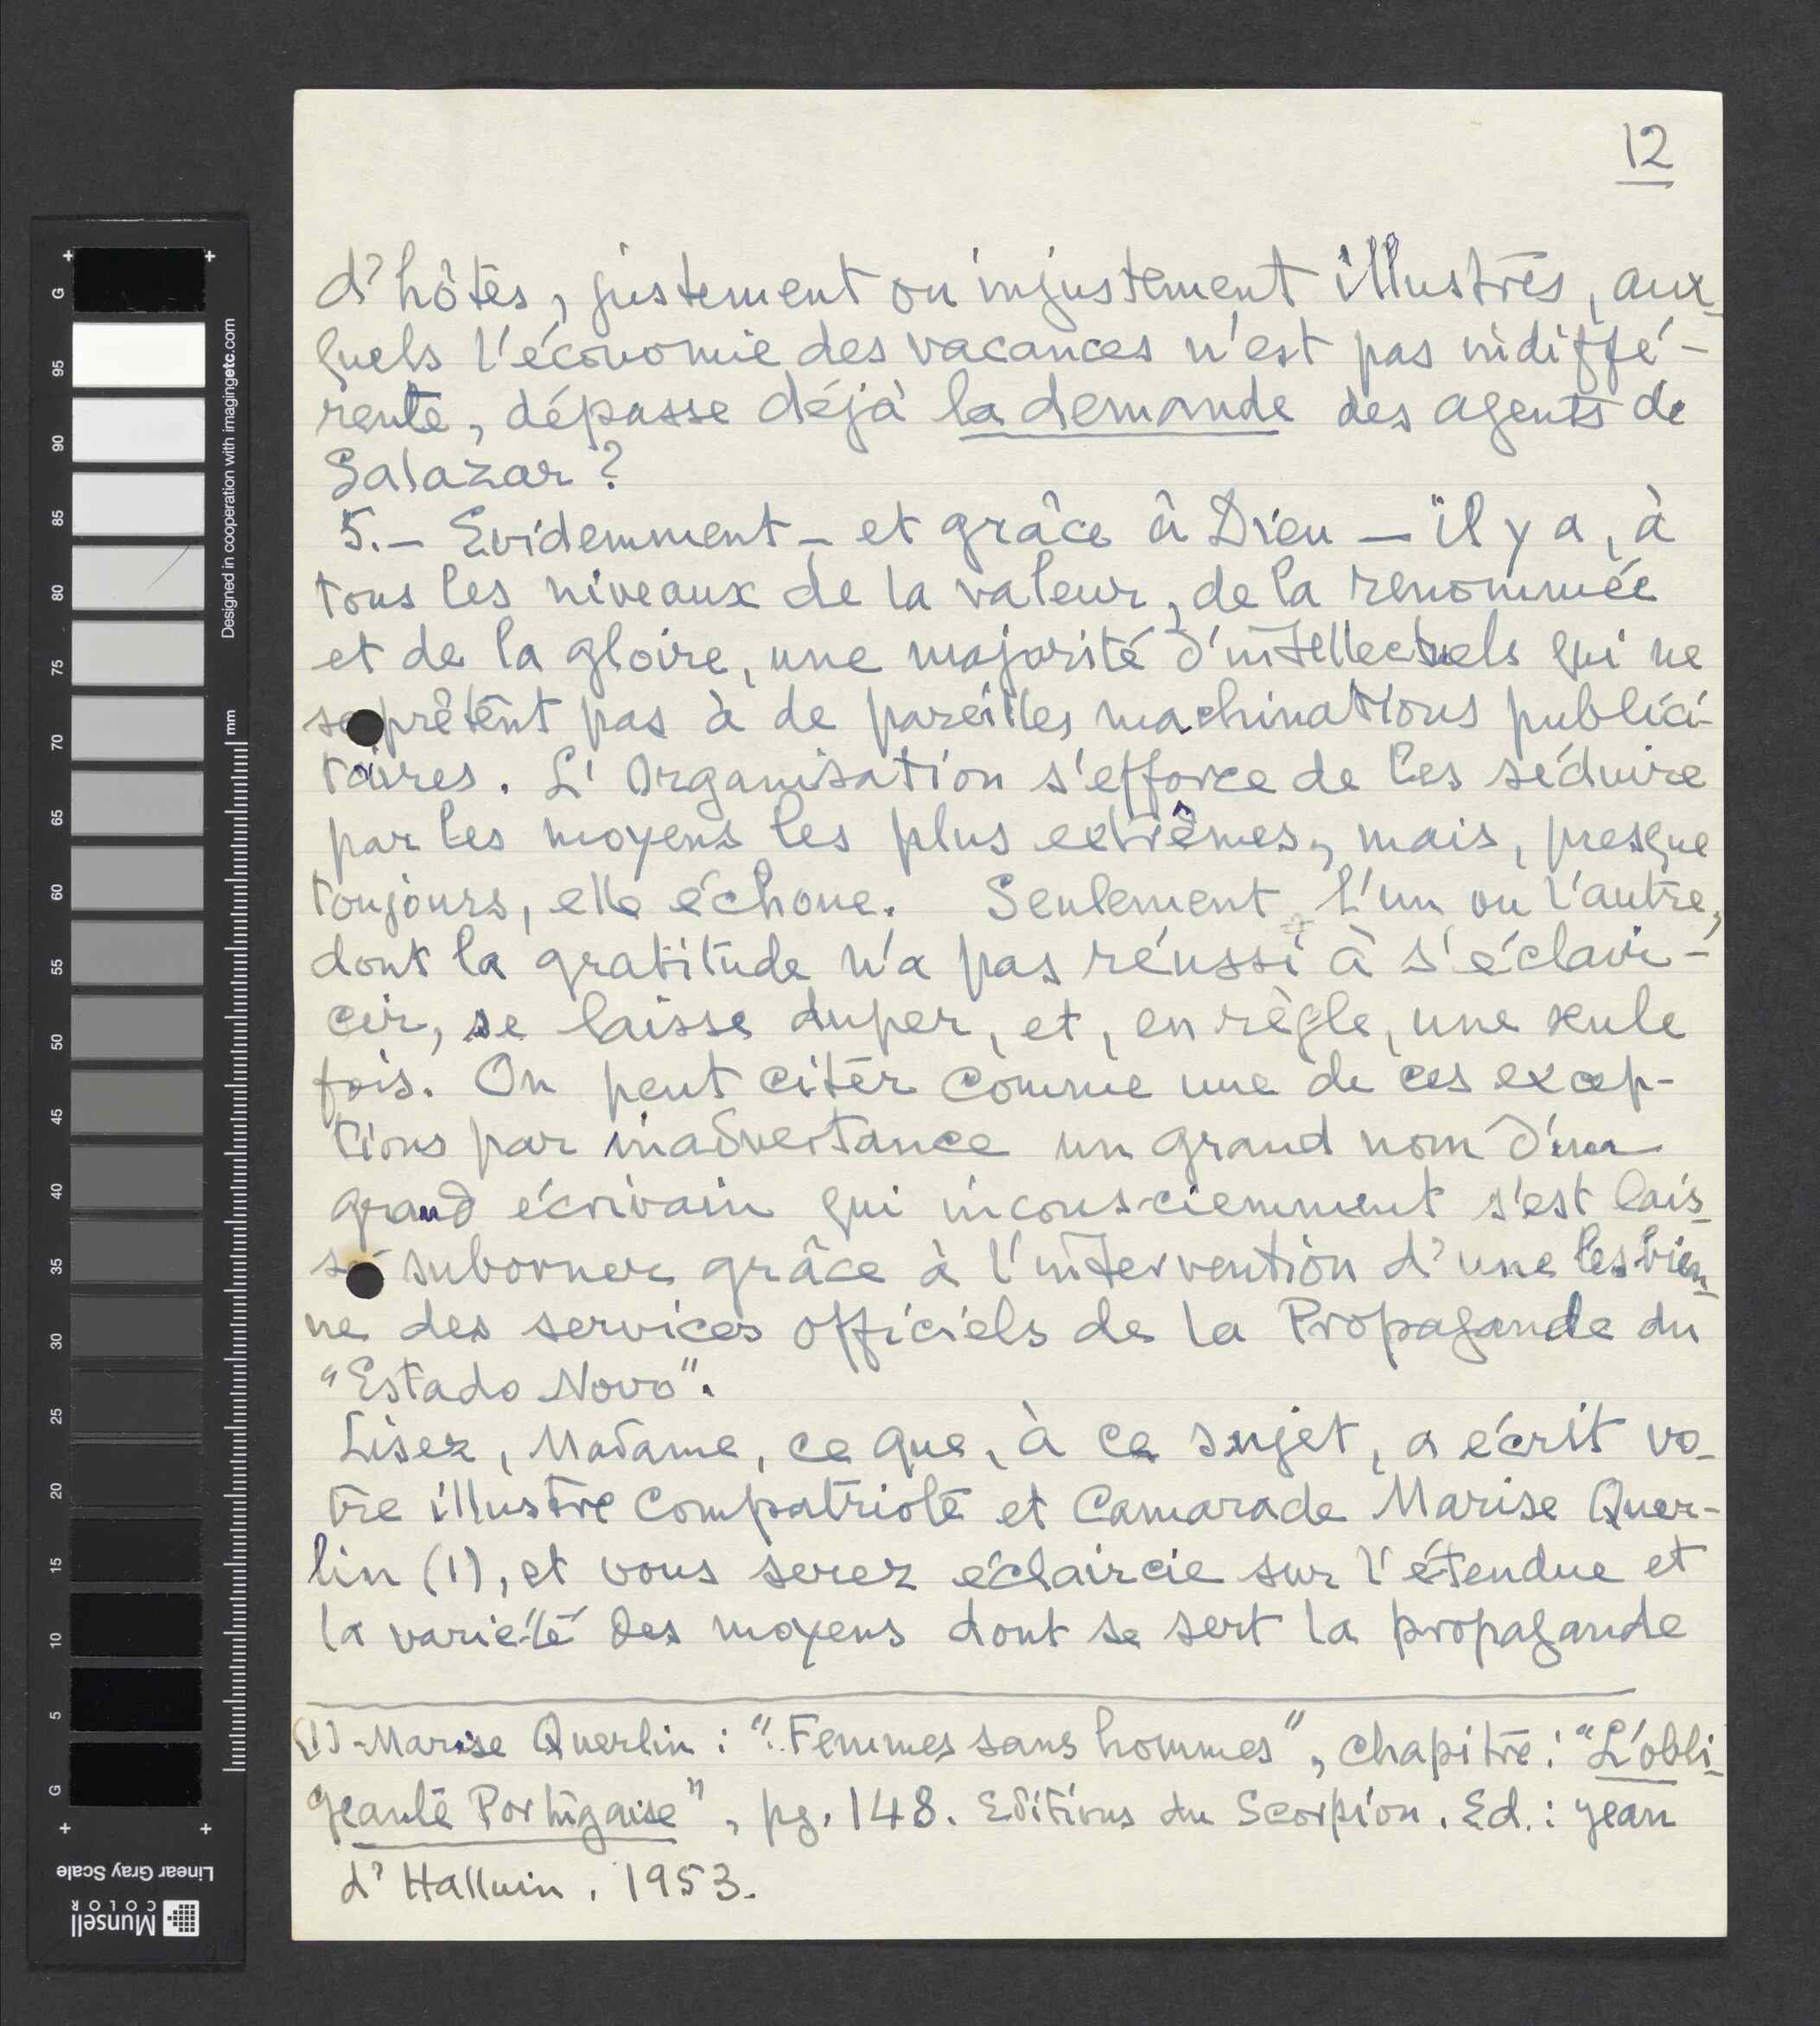 12
d'hôtes, justement ou injustement illustres, aux-
quels l'économie des vacances n'est pas indiffé-
rente, dépasse déjà la demande des agents de
Salazar?
5.- Evidemment - et grâce à Dieu - il y a, à
tous les niveaux de la valeur, de la renommée
et de la gloire, une majorité d'intellectuels qui ne
se prêtent pas à de pareilles machinations publici-
taires. L'Organisation s'efforce de les séduire
par les moyens les plus extrêmes, mais, presque
toujours, elle échoue. Seulement l'un ou l'autre,
dont la gratitude n'a pas réussi à s'éclair-
cir, se laisse duper, et, en règle, une seule
fois. On peut citer comme une de ces excep-
tions par inadvertance un grand nom d'un
grand écrivain qui inconsciemment s'est lais-
sé suborner grâce à l'intervention d'une lesbien-
ne des services officiels de la Propagande du
"Estado Novo".
Lisez, Madame, ce que, à ce sujet, a écrit vo-
tre illustre compatriote et Camarade Marise Quer-
lin (1), et vous serez éclaircie sur l'étendue et
la varieté des moyens dont se sert la propagande
(1)-Marise Querlin: "Femmes sans hommes", chapitre: "L'obli-
geante Portugaise", pg. 148. Editions du Scorpion. Ed.: Jean
d'Halluin. 1953.
G
95
90
85
80
75
70
65
60
55
50
45
40
35
30
25
20
15
10
5
G
mm
Designed in cooperation with imagingetc.com
Linear Gray Scale
Munsell
COLOR